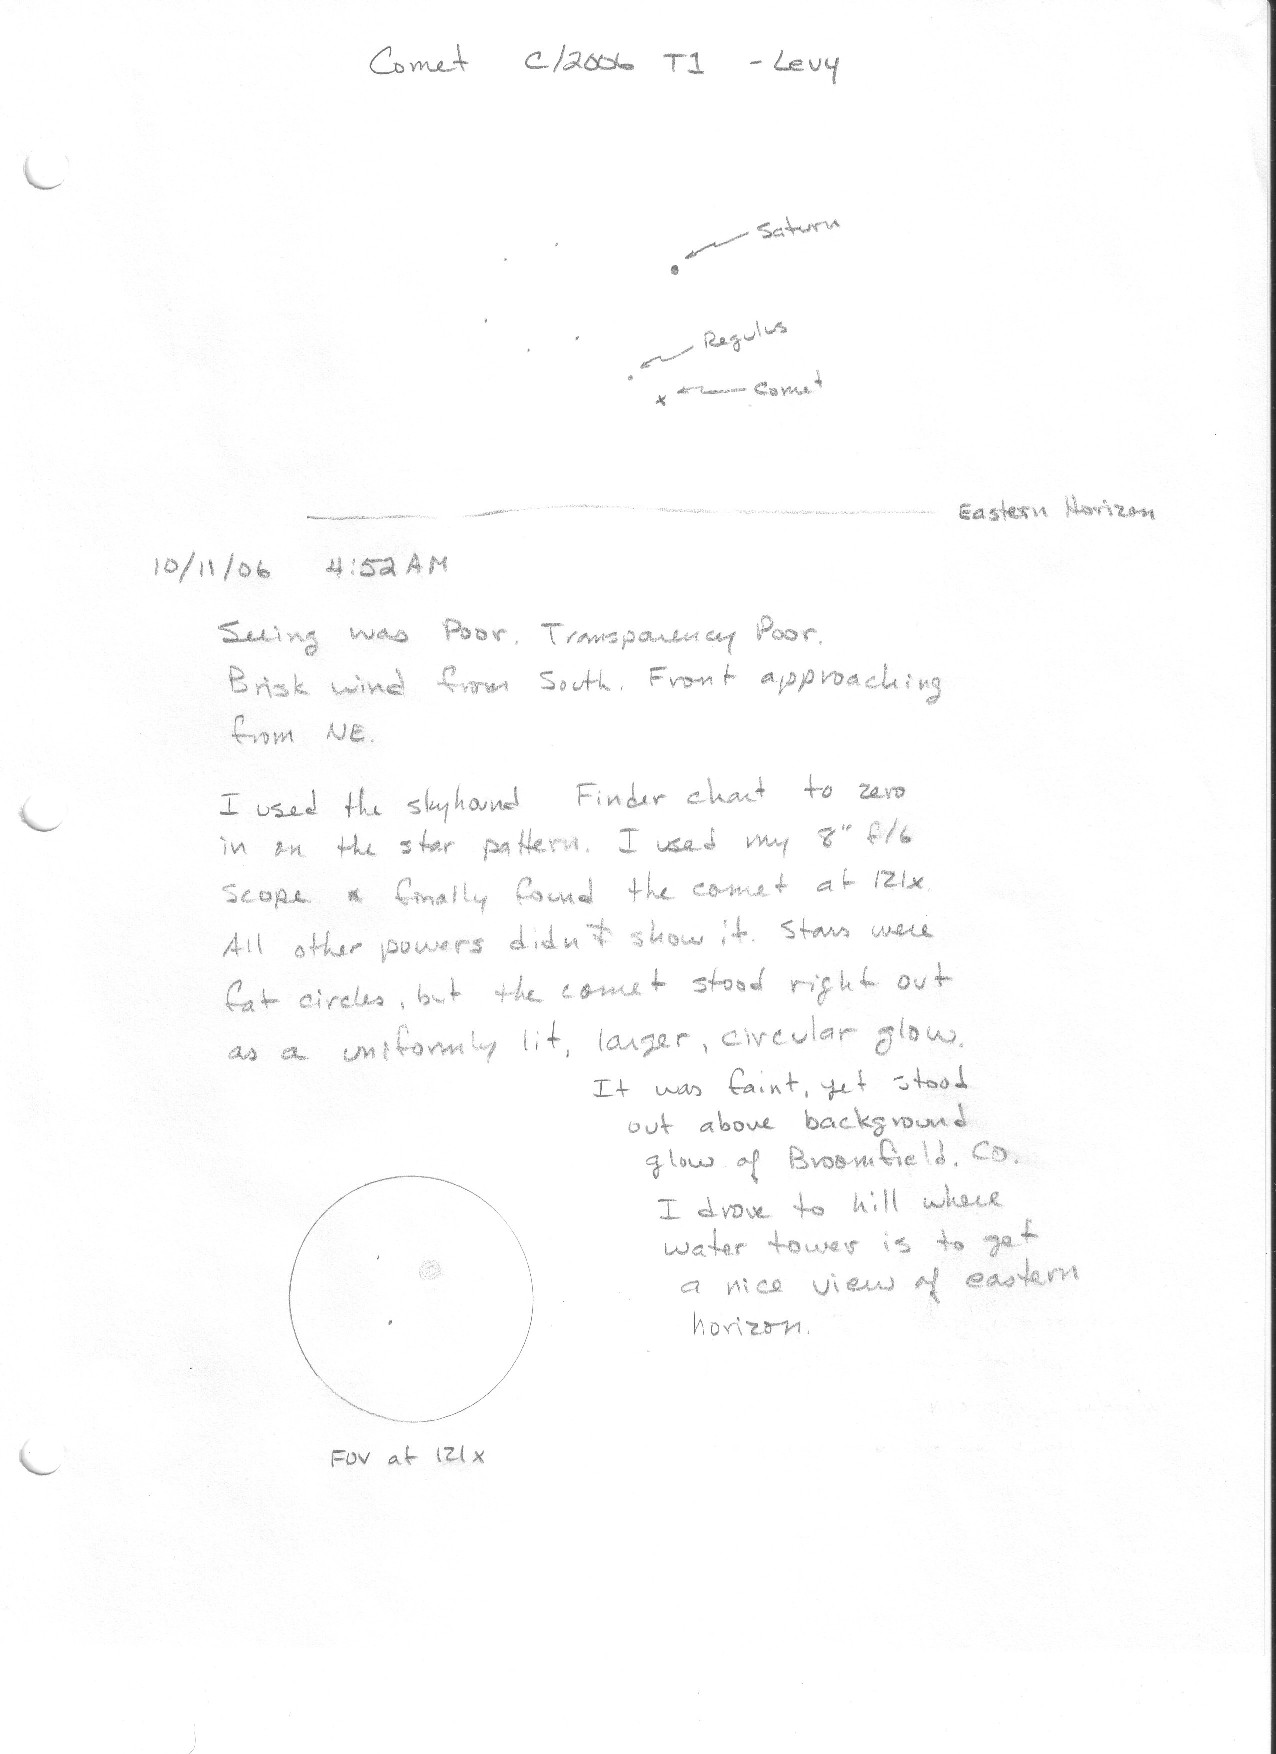 Comet C/2006 T1 - Levy
Saturn
Regulus
Comet
Eastern Horizon
10/11/06 4:52 AM
Seeing was Poor. Transparency Poor.
Brisk wind from South. Front approaching
from NE.
I used the skyhound Finder chart to zero
in on the star pattern. I used my 8" f/6
scope & finally found the comet at 121x.
All other powers didn't show it. Stars were
fat circles, but the comet stood right out
as a uniformly lit, larger, circular glow.
It was faint, yet stood
out above background
glow of Broomfield, CO.
I drove to hill where
water tower is to get
a nice view of eastern
horizon.
FOV at 121x